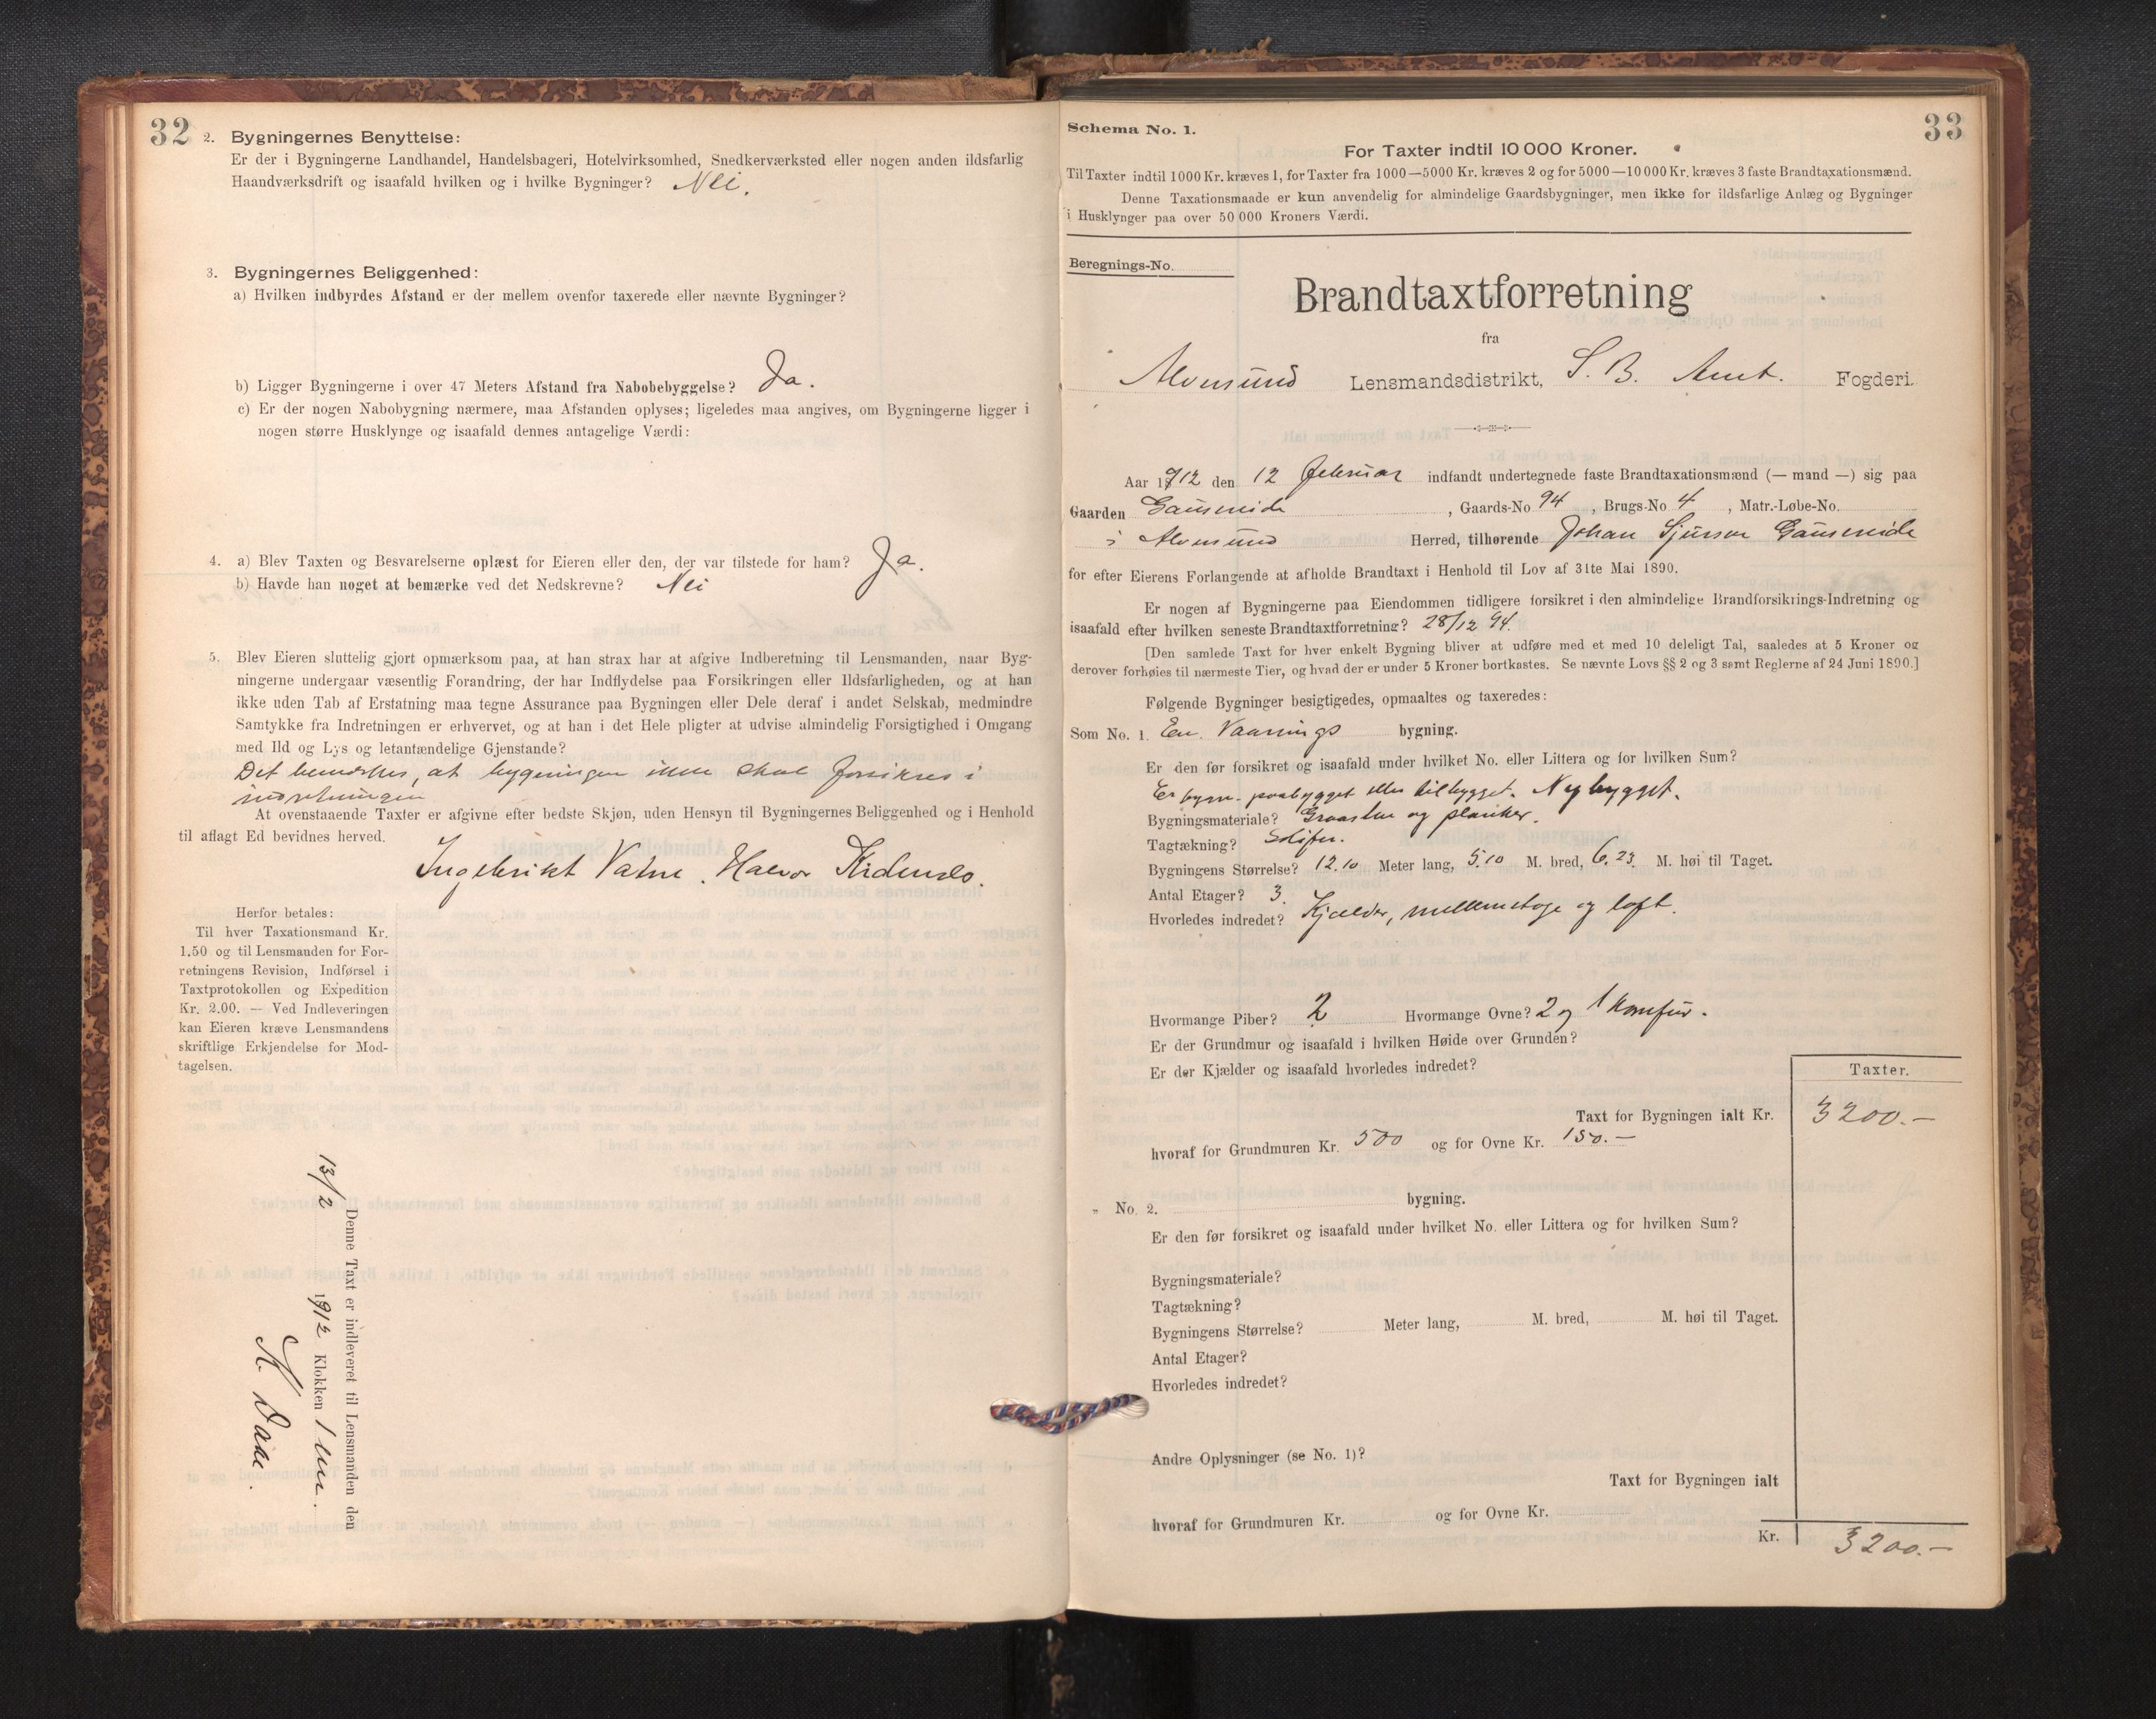 32
2. Bygningernes Benyttelse:
Er der i Bygningerne Landhandel, Handelsbageri, Hotelvirksomhed, Snedkerværksted eller nogen anden ildsfarlig
Haandværksdrift og isaafald hvilken og i hvilke Bygninger? Nei.
3. Bygningernes Beliggenhed:
a) Hvilken indbyrdes Afstand er der mellem ovenfor taxerede eller nævnte Bygninger?
b) Ligger Bygningerne i over 47 Meters Afstand fra Nabobebyggelse? Ja.
c) Er der nogen Nabobygning nærmere, maa Afstanden oplyses; ligeledes maa angives, om Bygningerne ligger i
nogen større Husklynge og isaafald dennes antagelige Værdi:
4. a) Blev Taxten og Besvarelserne oplæst for Eieren eller den, der var tilstede for ham? Ja.
b) Havde han noget at bemærke ved det Nedskrevne? Nei
5. Blev Eieren sluttelig gjort opmærksom paa, at han strax har at afgive Indberetning til Lensmanden, naar Byg-
ningerne undergaar væsentlig Forandring, der har Indflydelse paa Forsikringen eller Ildsfarligheden, og at han
ikke uden Tab af Erstatning maa tegne Assurance paa Bygningen eller Dele deraf i andet Selskab, medmindre
Samtykke fra Indretningen er erhvervet, og at han i det Hele pligter at udvise almindelig Forsigtighed i Omgang
med Ild og Lys og letantændelige Gjenstande?
Det bemerkes, at bygningen ikke skal forsikres i
indretningen
At ovenstaaende Taxter er afgivne efter bedste Skjøn, uden Hensyn til Bygningernes Beliggenhed og i Henhold
til aflagt Ed bevidnes herved.
Ingebrikt Vatne. Halvor
Herfor betales:
Til hver Taxationsmand Kr.
1.50 og til Lensmanden for For-
retningens Revision, Indførsel i
Taxtprotokollen og Expedition
Kr. 2.00. — Ved Indleveringen
kan Eieren kræve Lensmandens
skriftlige Erkjendelse for Mod-
tagelsen.
Denne Taxt er indleveret til Lensmanden den
13/2 1912 Klokken 1 em.
K. Daae.
33
Schema No. 1.
For Taxter indtil 10 000 Kroner.
Til Taxter indtil 1000 Kr. kræves 1, for Taxter fra 1000—5000 Kr. kræves 2 og for 5000—10 000 Kr. kræves 3 faste Brandtaxationsmænd.
Denne Taxationsmaade er kun anvendelig for almindelige Gaardsbygninger, men ikke for ildsfarlige Anlæg og Bygninger
i Husklynger paa over 50 000 Kroners Værdi.
Beregnings-No.
Brandtaxtforretning
fra
Alversund Lensmandsdistrikt, S. B. Amt. Fogderi.
Aar 1912 den 12 februar indfandt undertegnede faste Brandtaxationsmænd (— mand —) sig paa
Gaarden Gausereide, Gaards-No 94, Brugs-No 4, Matr.-Løbe-No.
i Alversund Herred, tilhørende Johan Sjursen Gausereide
for efter Eierens Forlangende at afholde Brandtaxt i Henhold til Lov af 31te Mai 1890.
Er nogen af Bygningerne paa Eiendommen tidligere forsikret i den almindelige Brandforsikrings-Indretning og
isaafald efter hvilken seneste Brandtaxtforretning? 28/12 94.
[Den samlede Taxt for hver enkelt Bygning bliver at udføre med et med 10 deleligt Tal, saaledes at 5 Kroner og
derover forhøies til nærmeste Tier, og hvad der er under 5 Kroner bortkastes. Se nævnte Lovs §§ 2 og 3 samt Reglerne af 24 Juni 1890.]
Følgende Bygninger besigtigedes, opmaaltes og taxeredes:
Som No. 1. En Vaanings bygning.
Er den før forsikret og isaafald under hvilket No. eller Littera og for hvilken Sum?
Er bygn. paabygget eller tilbygget. Nybygget.
Bygningsmateriale? Graasten og planker.
Tagtækning? Skifer.
Bygningens Størrelse? 12.10 Meter lang, 5.10 M. bred, 6.23 M. høi til Taget.
Antal Etager? 3.
Hvorledes indredet? Kjælder, mellemetage og loft.
Hvormange Piber? 2 Hvormange Ovne? 2 og 1 komfur.
Er der Grundmur og isaafald i hvilken Høide over Grunden?
Er der Kjælder og isaafald hvorledes indredet?
Taxter.
Taxt for Bygningen ialt Kr. 3200.—
hvoraf for Grundmuren Kr. 500 og for Ovne Kr. 150.—
„ No. 2. bygning.
Er den før forsikret og isaafald under hvilket No. eller Littera og for hvilken Sum?
Bygningsmateriale?
Tagtækning?
Bygningens Størrelse? Meter lang, M. bred, M. høi til Taget.
Antal Etager?
Hvorledes indredet?
Andre Oplysninger (se No. 1)?
Taxt for Bygningen ialt
hvoraf for Grundmuren Kr. og for Ovne Kr.
Kr. 3200.—